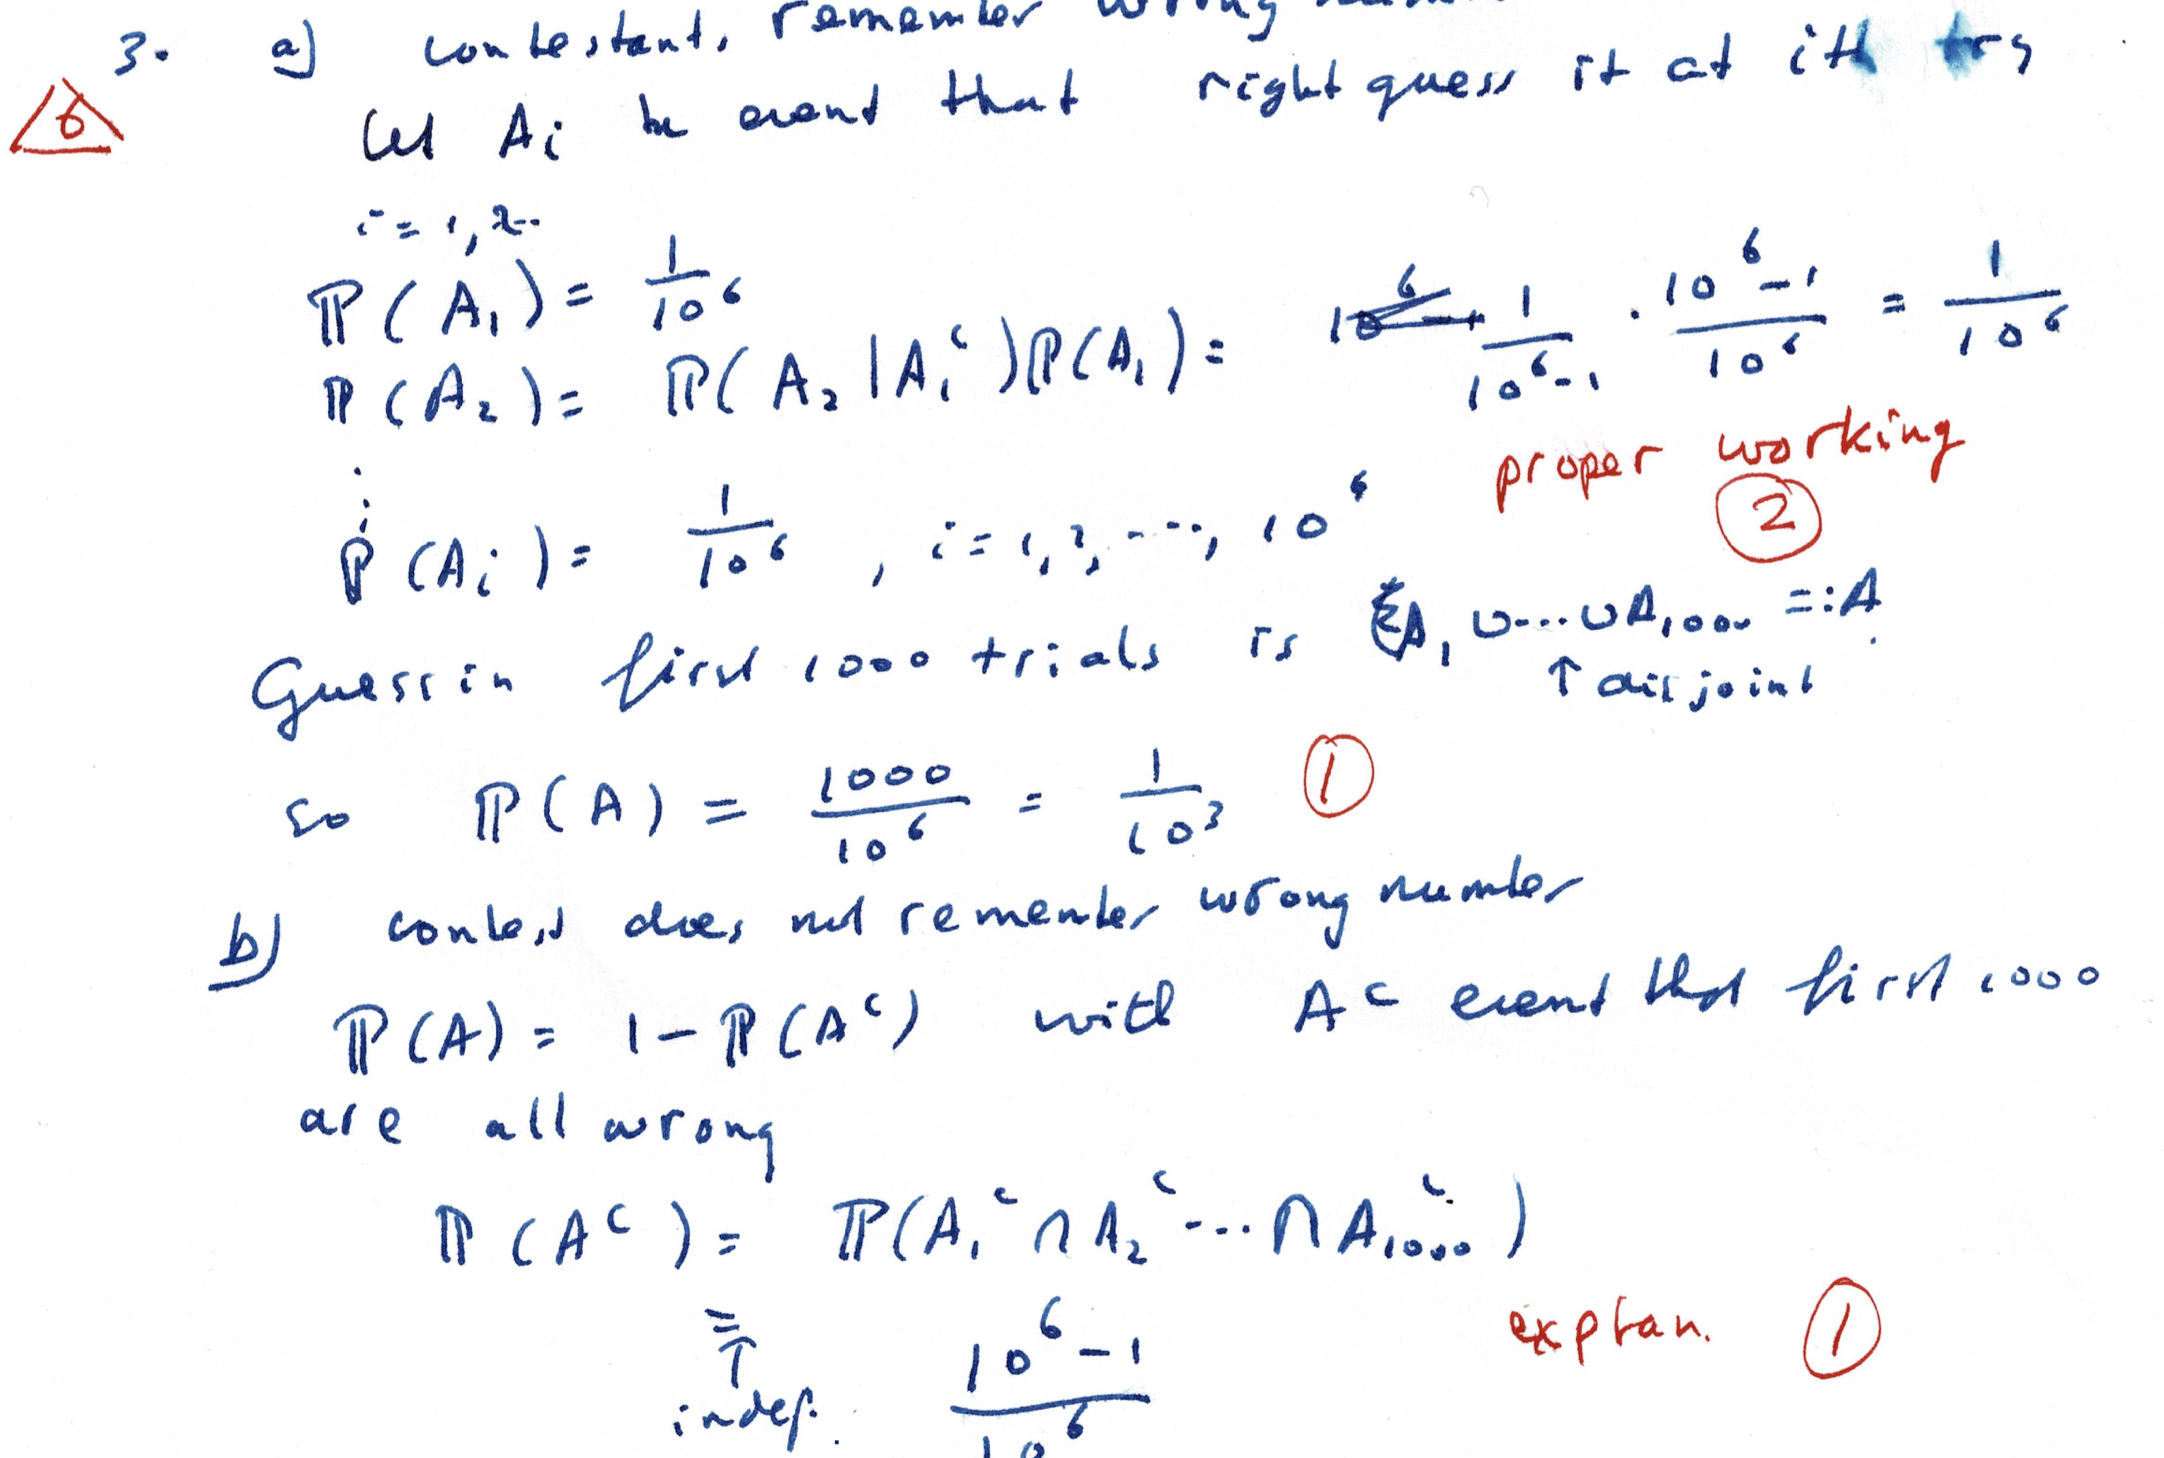 3. a) contestant, remember wrong
6
Let Ai be event that right guess it at ith try
i = 1, 2--
ℙ(A₁) = 1/10⁶
ℙ(A₂) = ℙ(A₂|A₁ᶜ)ℙ(A₁) = 1/(10⁶-1) · (10⁶-1)/10⁶ = 1/10⁶
proper working
2
⋮
ℙ(Ai) = 1/10⁶, i = 1, 2, ---, 10⁶
Guess in first 1000 trials is A₁ ∪...∪A₁₀₀₀ =: A
↑ disjoint
so ℙ(A) = 1000/10⁶ = 1/10³ 1
b) contest does not remember wrong number
ℙ(A) = 1 - ℙ(Aᶜ) with Aᶜ event that first 1000
are all wrong
ℙ(Aᶜ) = ℙ(A₁ᶜ ∩ A₂ᶜ ---∩ A₁₀₀₀ᶜ)
= (10⁶-1)/10⁶ explan. 1
↑
indep.